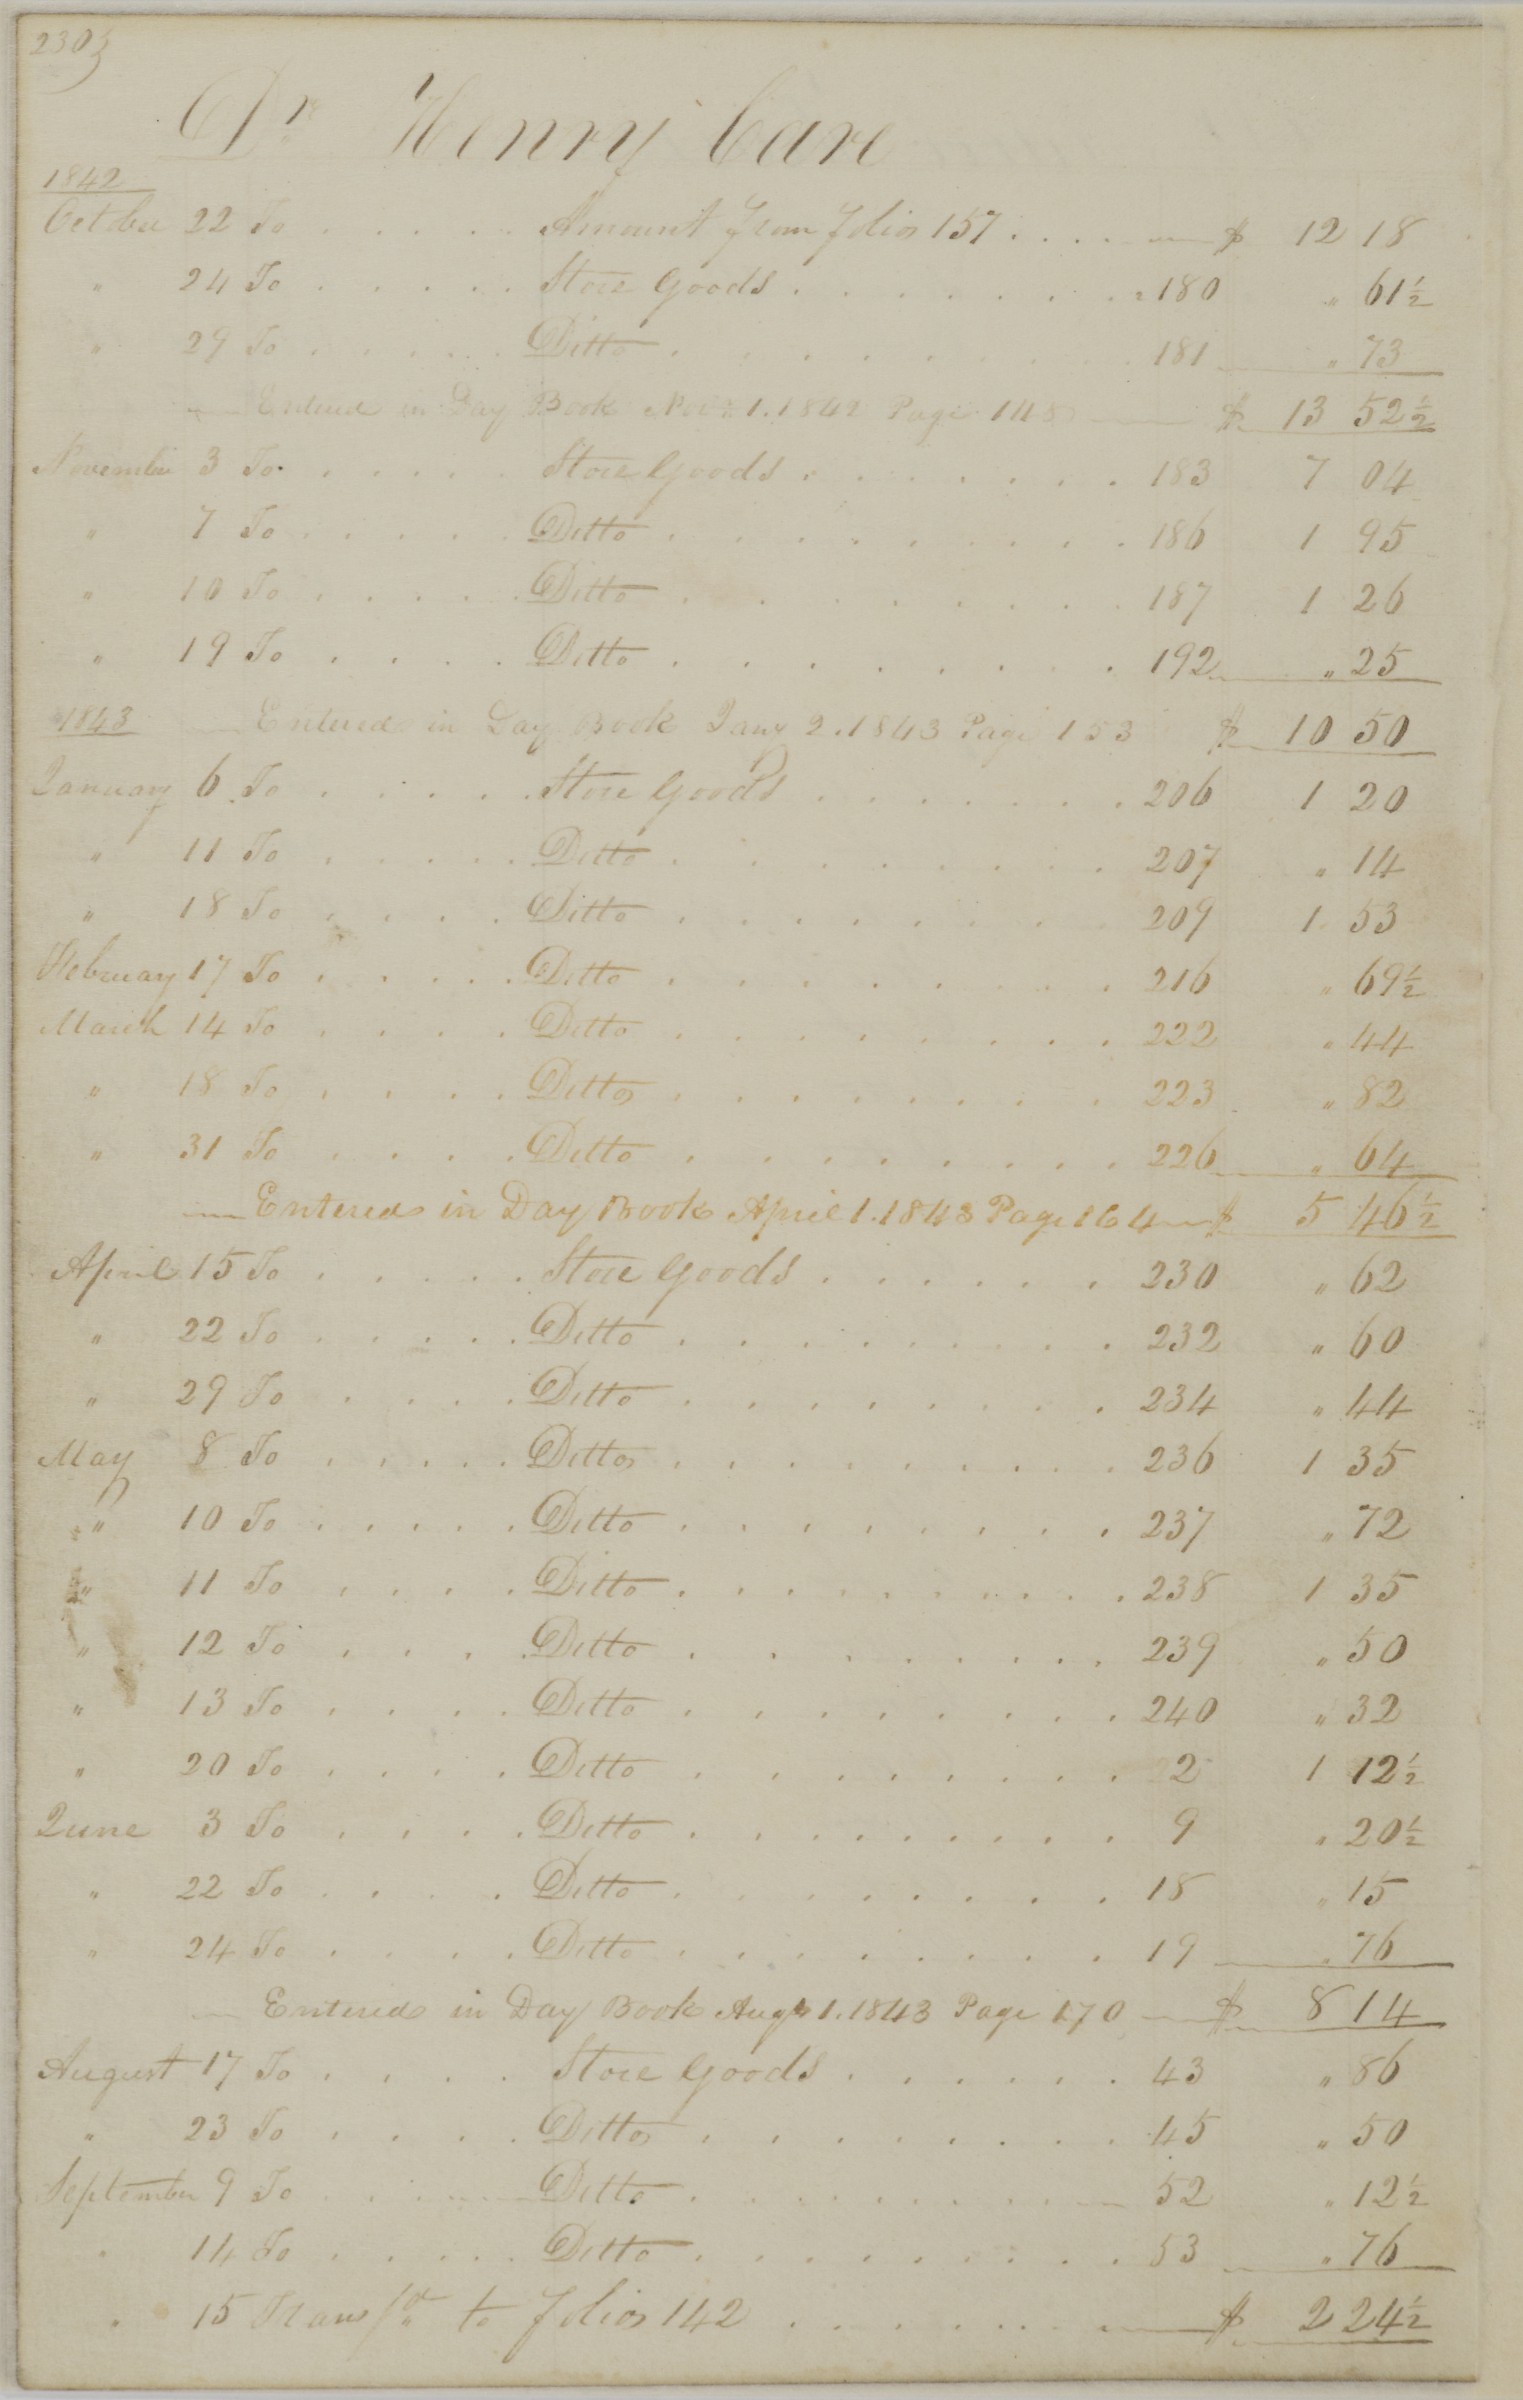 230
Dr Henry Care
1842
October 22 To . . . . . Amount from folio 157 . . . . $ 12 18
" 24 To . . . . . Store Goods . . . . . . . 180 " 61½
" 29 To . . . . . Ditto . . . . . . . . 181 " 73
Entered in Day Book Novr 1. 1842 Page 148 $ 13 52½
November 3 To . . . . . Store Goods . . . . . . . 183 7 04
" 7 To . . . . . Ditto . . . . . . . . 186 1 95
" 10 To . . . . . Ditto . . . . . . . . 187 1 26
" 19 To . . . . Ditto . . . . . . . . 192 " 25
1843 Entered in Day Book Jany 2. 1843 Page 153 $ 10 50
January 6 To . . . . . Store Goods . . . . . . . 206 1 20
" 11 To . . . . . Ditto . . . . . . . . 207 " 14
" 18 To . . . . Ditto . . . . . . . . 209 1 53
February 17 To . . . . . Ditto . . . . . . . . 216 " 69½
March 14 To . . . . Ditto . . . . . . . . 222 " 44
" 18 To . . . . Ditto . . . . . . . . 223 " 82
" 31 To . . . . Ditto . . . . . . . . 226 " 64
Entered in Day Book April 1. 1843 Page 164 $ 5 46½
April 15 To . . . . . Store Goods . . . . . . 230 " 62
" 22 To . . . . . Ditto . . . . . . . . 232 " 60
" 29 To . . . . Ditto . . . . . . . . 234 " 44
May 8 To . . . . . Ditto . . . . . . . . 236 1 35
" 10 To . . . . . Ditto . . . . . . . . 237 " 72
" 11 To . . . . Ditto . . . . . . . . 238 1 35
" 12 To . . . . Ditto . . . . . . . . 239 " 50
" 13 To . . . . Ditto . . . . . . . . 240 " 32
" 20 To . . . . Ditto . . . . . . . . 2 1 12½
June 3 To . . . . Ditto . . . . . . . . 9 " 20½
" 22 To . . . . Ditto . . . . . . . . 18 " 15
" 24 To . . . . Ditto . . . . . . . . 19 " 76
Entered in Day Book Augt 1. 1843 Page 170 $ 8 14
August 17 To . . . . Store Goods . . . . . . 43 " 86
" 23 To . . . . Ditto . . . . . . . . 45 " 50
September 9 To . . . . Ditto . . . . . . . . 52 " 12½
" 14 To . . . . . Ditto . . . . . . . . 53 " 76
" 15 Transfd to folio 142 . . . . . . . $ 2 24½